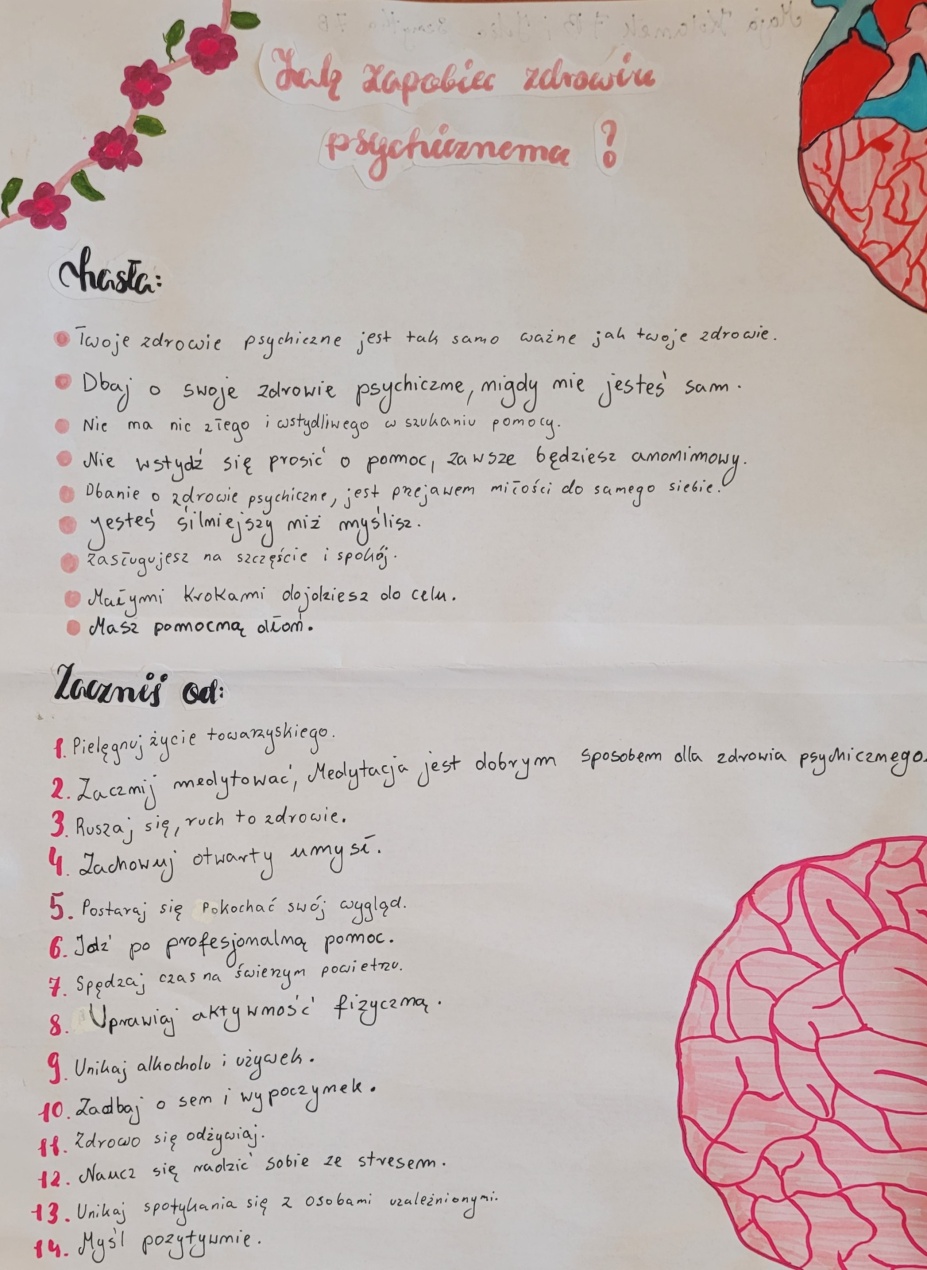 Jak zapobiec zdrowiu
psychicznema ?
Hasła:
Twoje zdrowie psychiczne jest tak samo ważne jak twoje zdrowie.
Dbaj o swoje zdrowie psychiczne, nigdy nie jesteś sam.
Nie ma nic złego i wstydliwego w szukaniu pomocy.
Nie wstydź się prosić o pomoc, zawsze będziesz anonimowy.
Dbanie o zdrowie psychiczne, jest przejawem miłości do samego siebie.
Jesteś silniejszy niż myślisz.
Zasługujesz na szczęście i spokój.
Małymi krokami dojdziesz do celu.
Masz pomocną dłoń.
Zacznij od:
1. Pielęgnuj życie towarzyskiego.
2. Zacznij medytować, Medytacja jest dobrym sposobem dla zdrowia psychicznego.
3. Ruszaj się, ruch to zdrowie.
4. Zachowuj otwarty umysł.
5. Postaraj się pokochać swój wygląd.
6. Idź po profesjonalną pomoc.
7. Spędzaj czas na świeżym powietrzu.
8. Uprawiaj aktywność fizyczną.
9. Unikaj alkocholu i używek.
10. Zadbaj o sen i wypoczynek.
11. Zdrowo się odżywiaj.
12. Naucz się radzić sobie ze stresem.
13. Unikaj spotykania się z osobami uzależnionymi.
14. Myśl pozytywnie.